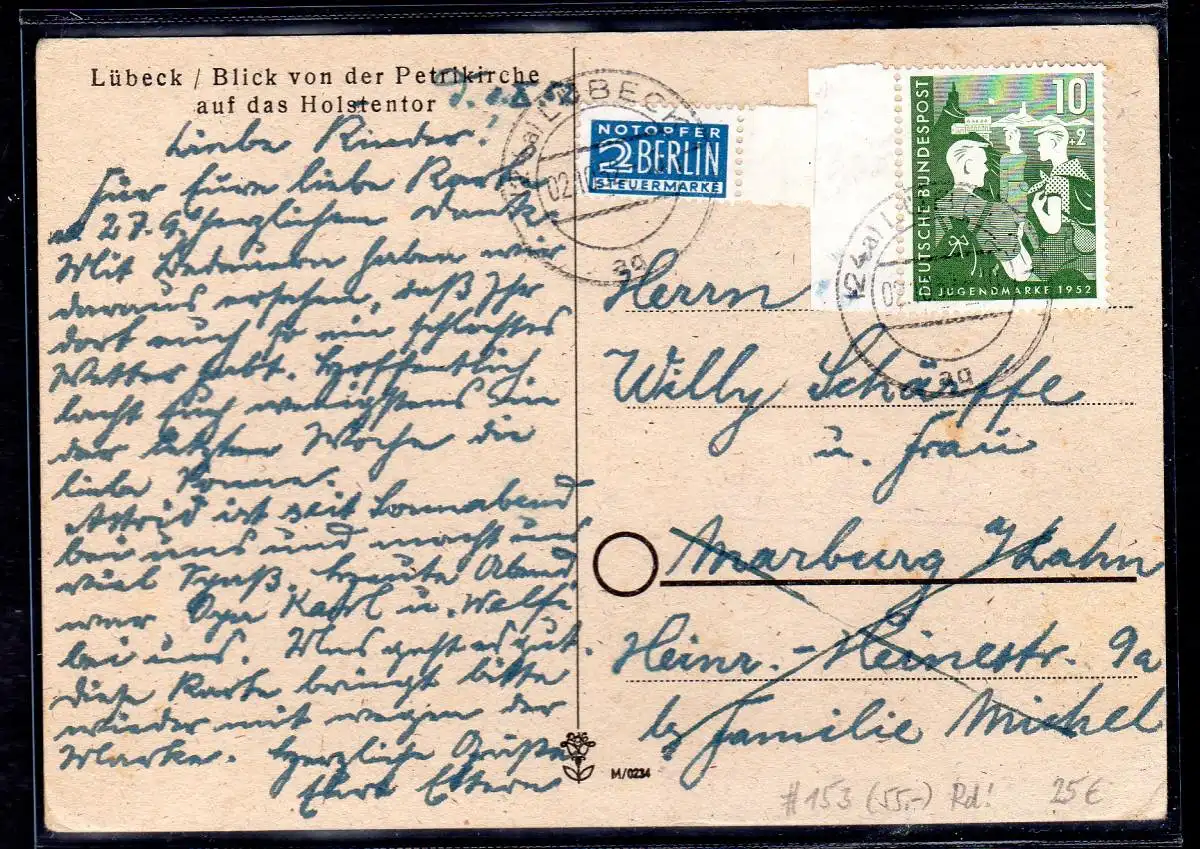 Lübeck / Blick von der Petrikirche
auf das Holstentor
Liebe Kinder!
Für Eure liebe Karte
v. 27.9. herzlichen Dank.
Mit Bedauern haben wir
daraus ersehen, daß Ihr
dort auch so ein schlechtes
Wetter habt. Hoffentlich
lacht Euch wenigstens in
der letzten Woche die
liebe Sonne.
Astrid ist seit Sonnabend
bei uns und macht uns
viel Spaß. Heute Abend
war Opa Karl u.
bei uns. Uns geht es gut.
Diese Karte bringt bitte
wieder mit wegen der
Marke. Herzliche Grüße
Eure Eltern
NOTOPFER
2 BERLIN
STEUERMARKE
LÜBECK
02.10
aq
10
+2
DEUTSCHE BUNDESPOST
JUGENDMARKE 1952
(24a) L
02.
aq
Herrn
Willy Schäffe
u. Frau
Marburg / Lahn
Heinr.-Heinestr. 9a
bei Familie Michel
M/0234
#153 (55,-) Rd! 25€